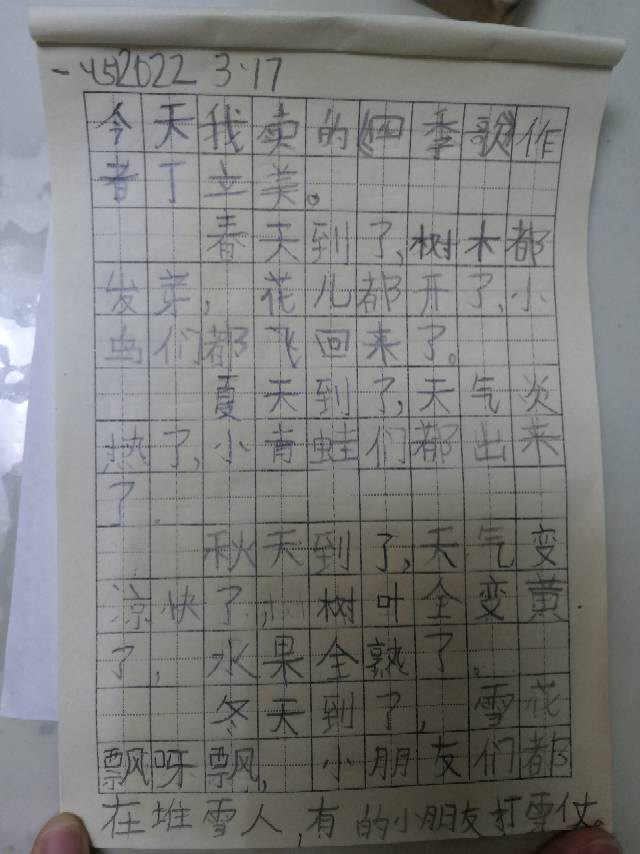 2022 3.17
今天我卖的《四季歌》作
者丁立美。
春天到了,树木都
发芽,花儿都开了,小
鸟们都飞回来了。
夏天到了,天气炎
热了,小青蛙们都出来
了.
秋天到了,天气变
凉快了,树叶全变黄
了,水果全熟了。
冬天到了,雪花
飘呀飘,小朋友们都
在堆雪人,有的小朋友打雪仗。